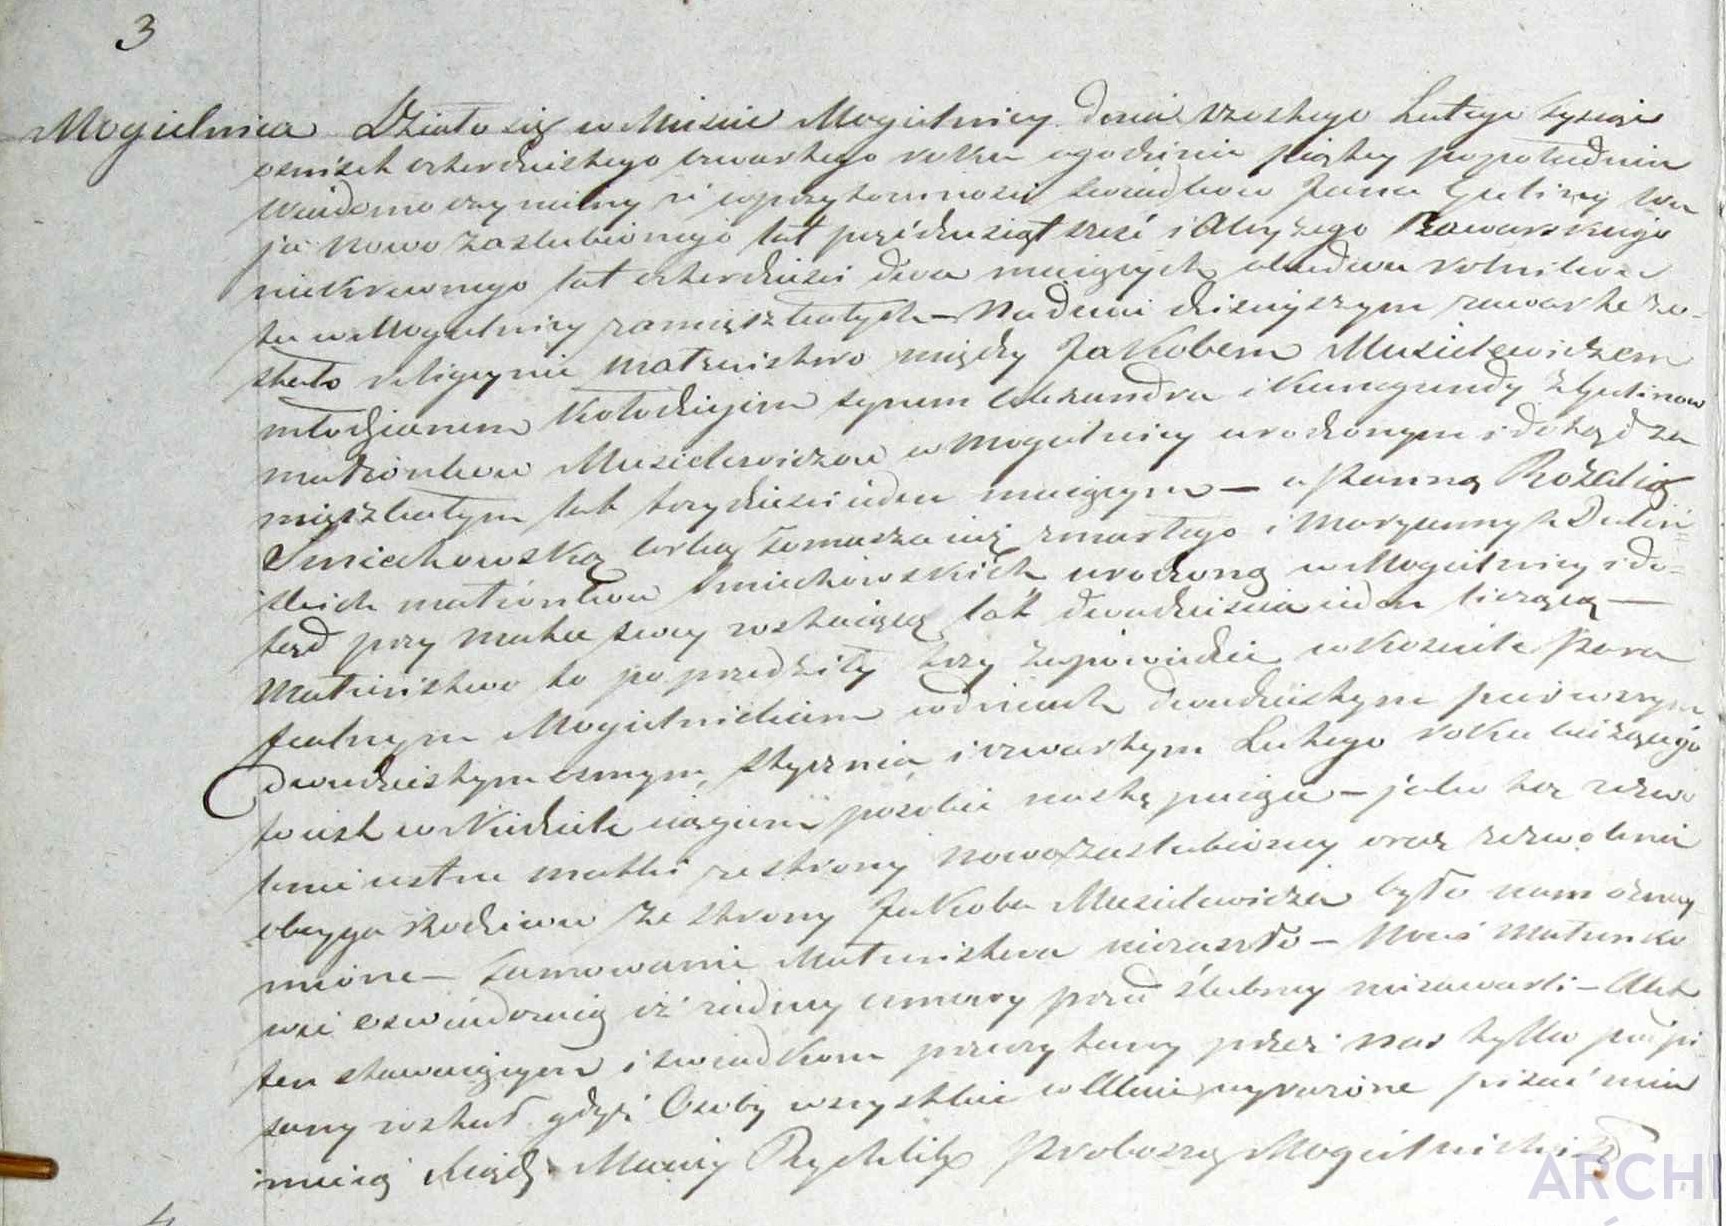 3
Mogielnica Działo się w Mieście Mogielnicy dnia szóstego Lutego tysiąc
osmset czterdziestego czwartego roku o godzinie piątey popołudniu
Wiadomo czyniemy iż w przytomności świadków Jana Guliny wu
ja nowo zaslubionego lat pięćdziesiąt sześć i Aloyzego Rawarskiego
niekrewnego lat czterdzieści dwa maiących obudwu rolników
tu w Mogielnicy zamięszkałych – Na dniu dzisieyszym zawarte zo-
stało religiynie małżeństwo między Jakobem Musielewiczem
młodzianem Kołodziejem synem Alexandra i Kunegundy z Gulinow
małżonków Musielewiczow w Mogielnicy urodzonym i dotąd za
mięszkałym lat trzydzieści ieden maiącym – a Panną Rozalią
Smiechowską córką Tomasza iuż zmarłego i Maryanny z Deliń
skich małżonków Smiechowskich urodzoną w Mogielnicy i do-
tąd przy matce swey zostaiącą lat dwadzieścia ieden liczącą –
Małżeństwo to poprzedziły trzy zapowiedzie w Kościele Para
fialnym Mogielnickim w dniach dwudziestym pierwszym
dwudziestym osmym, stycznia i czwartym Lutego roku bieżącego
to iest w Niedziele ciągiem po sobie następuiące – jako też zezwo
lenie ustne matki ze strony nowozaslubioney oraz zezwolenie
oboyga Rodziców ze strony Jakoba Musielewicza było nam oznay-
mione – tamowanie Małżeństwa nie zaszło – Nowi Małżonko
wie oswiadczaią iż żadney umowy przed ślubney nie zawarli – Akt
ten stawaiącym i swiadkom przeczytany przez nas tylko podpi-
sany został gdyż Osoby wszystkie w Akcie wyrażone pisać nie
umieią Xiądz Maciey Rychlik Proboszcz Mogielnicki
ARCHI